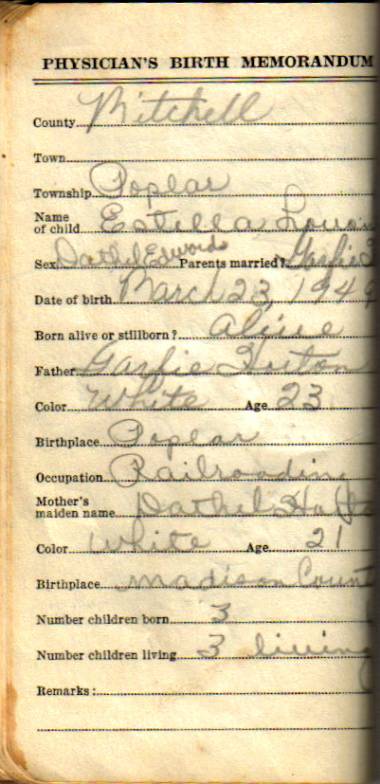 PHYSICIAN'S BIRTH MEMORANDUM
County Mitchell
Town
Township Poplar
Name
of child Estella
Sex Dathel Edwords Parents married? Garfie
Date of birth March 23, 1949
Born alive or stillborn? alive
Father Garfie
Color White Age 23
Birthplace Poplar
Occupation Railroading
Mother's
maiden name Dathel
Color White Age 21
Birthplace madison Count
Number children born 3
Number children living 3 living
Remarks: